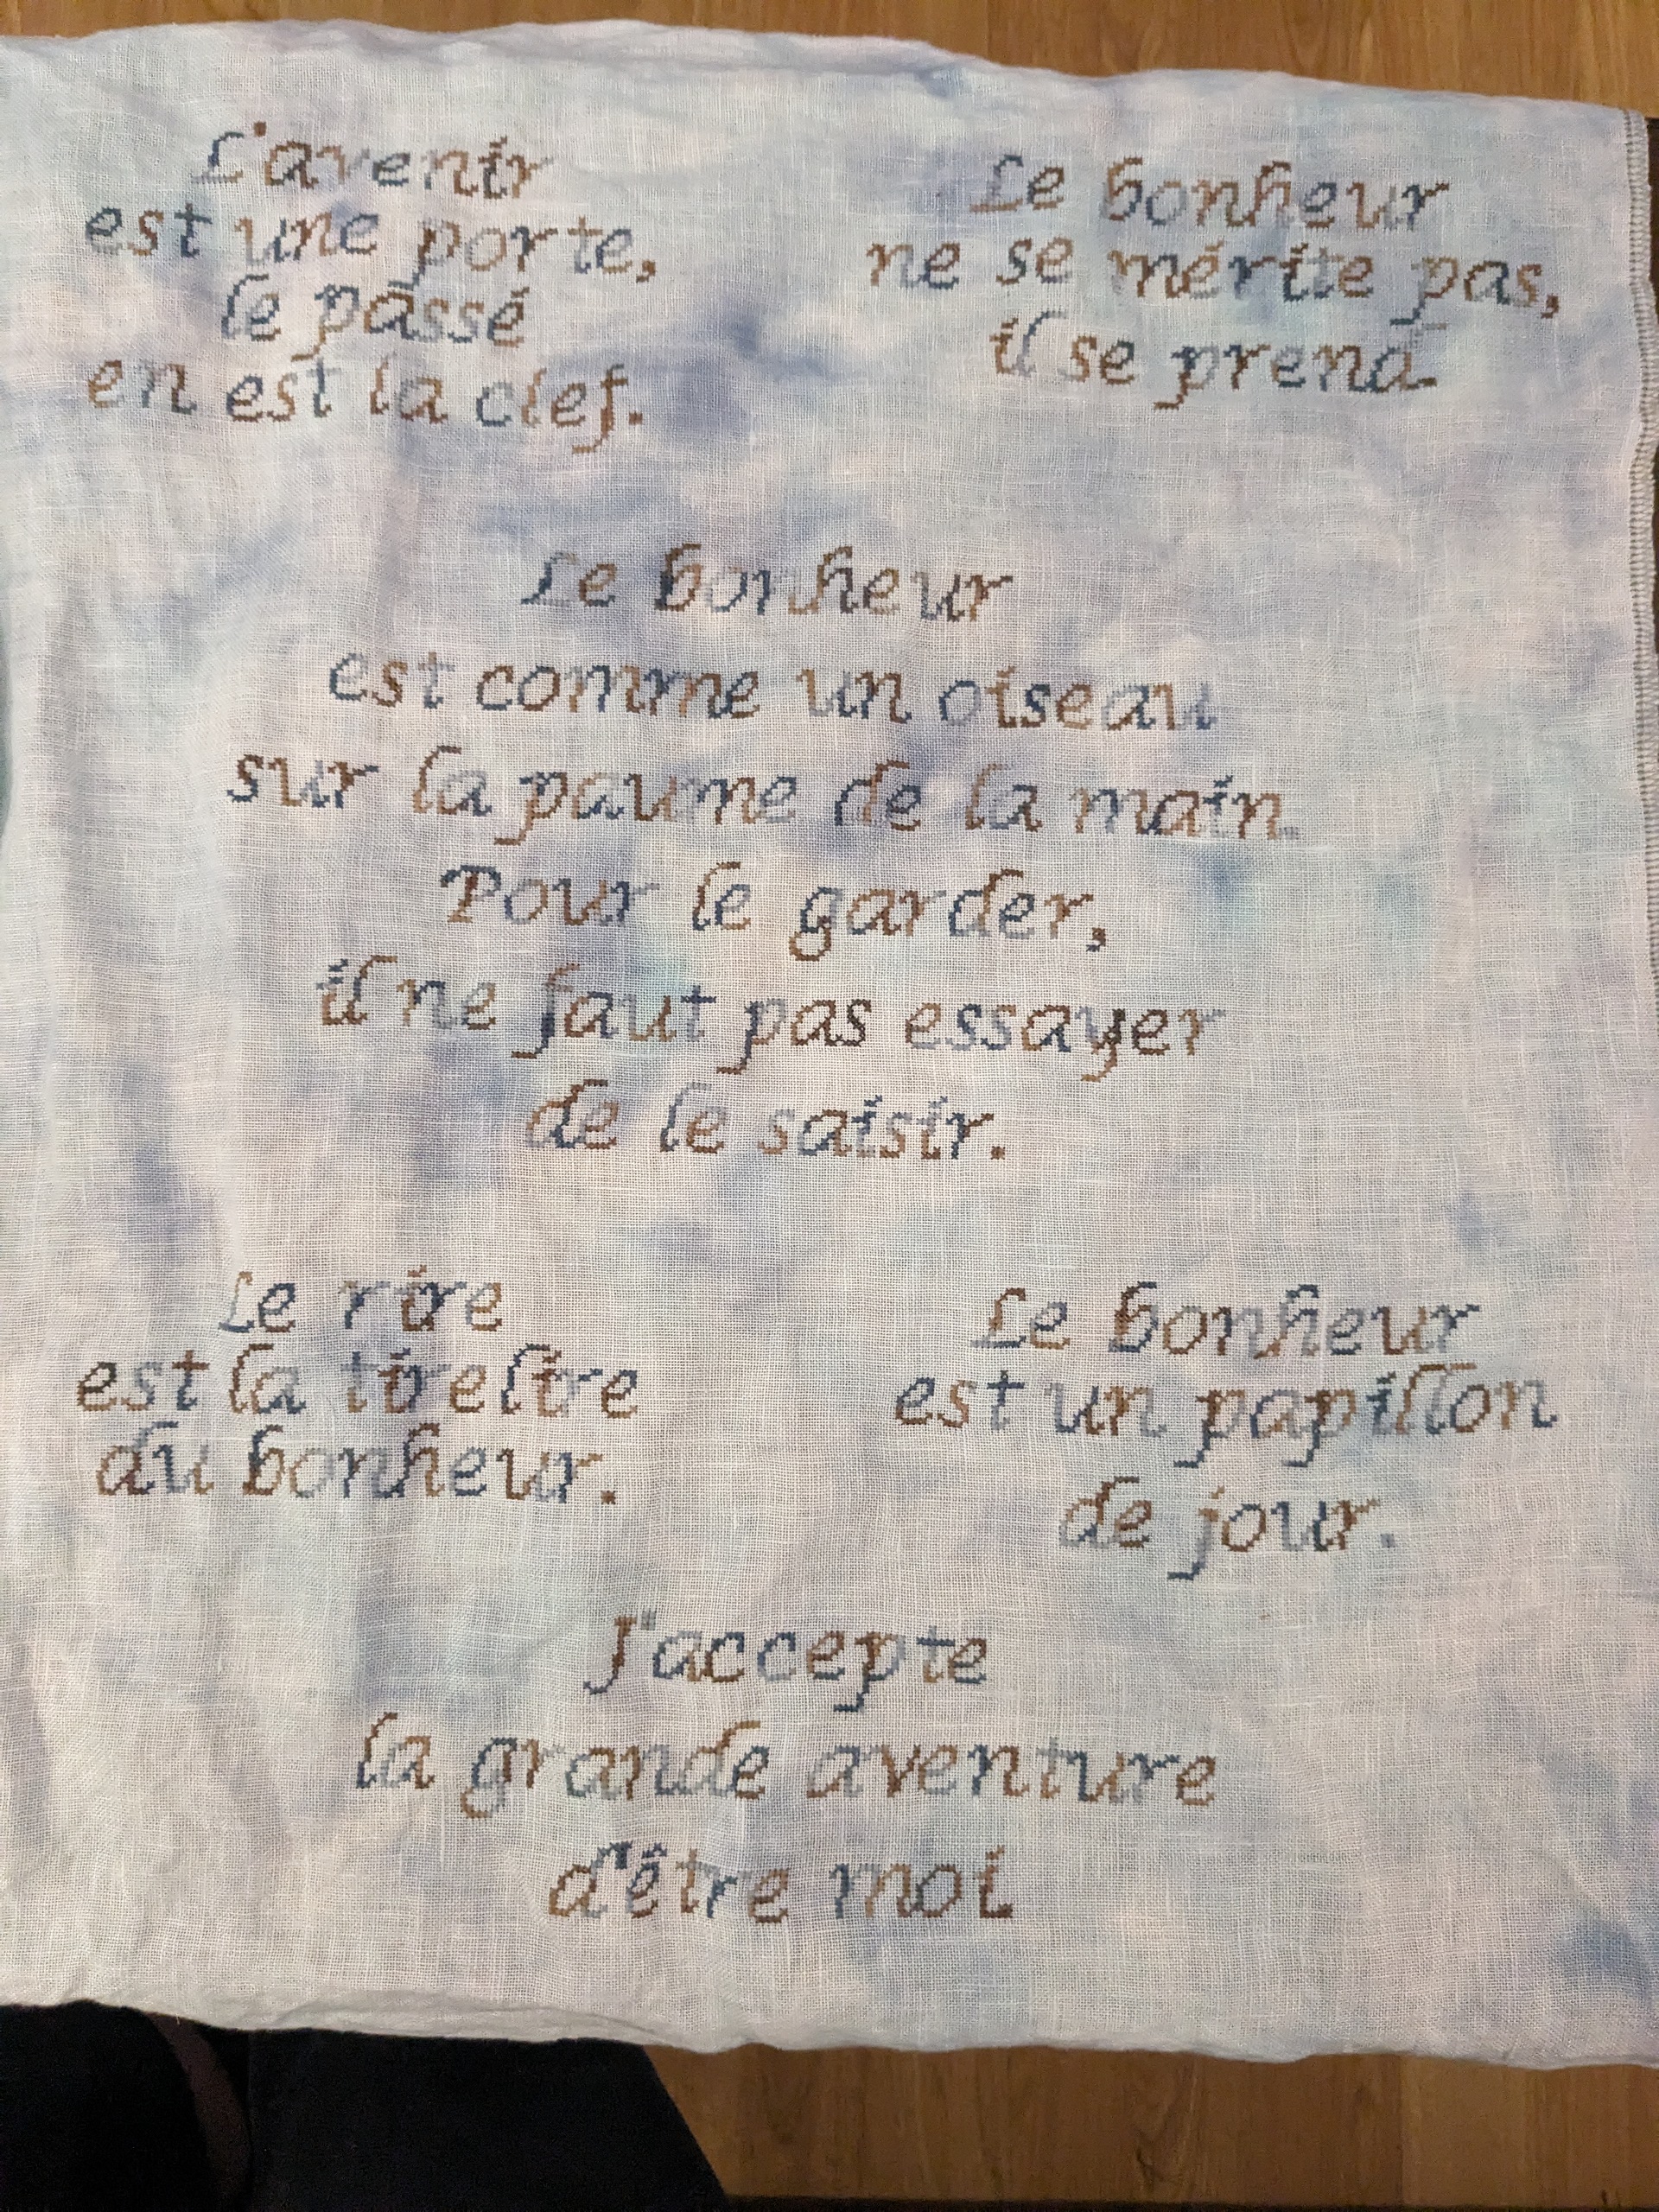 L'avenir
est une porte,
le passé
en est la clef.
Le bonheur
ne se mérite pas,
il se prend
Le bonheur
est comme un oiseau
sur la paume de la main.
Pour le garder,
il ne faut pas essayer
de le saisir.
Le rire
est la tirelire
du bonheur.
Le bonheur
est un papillon
de jour.
J'accepte
la grande aventure
d'être moi